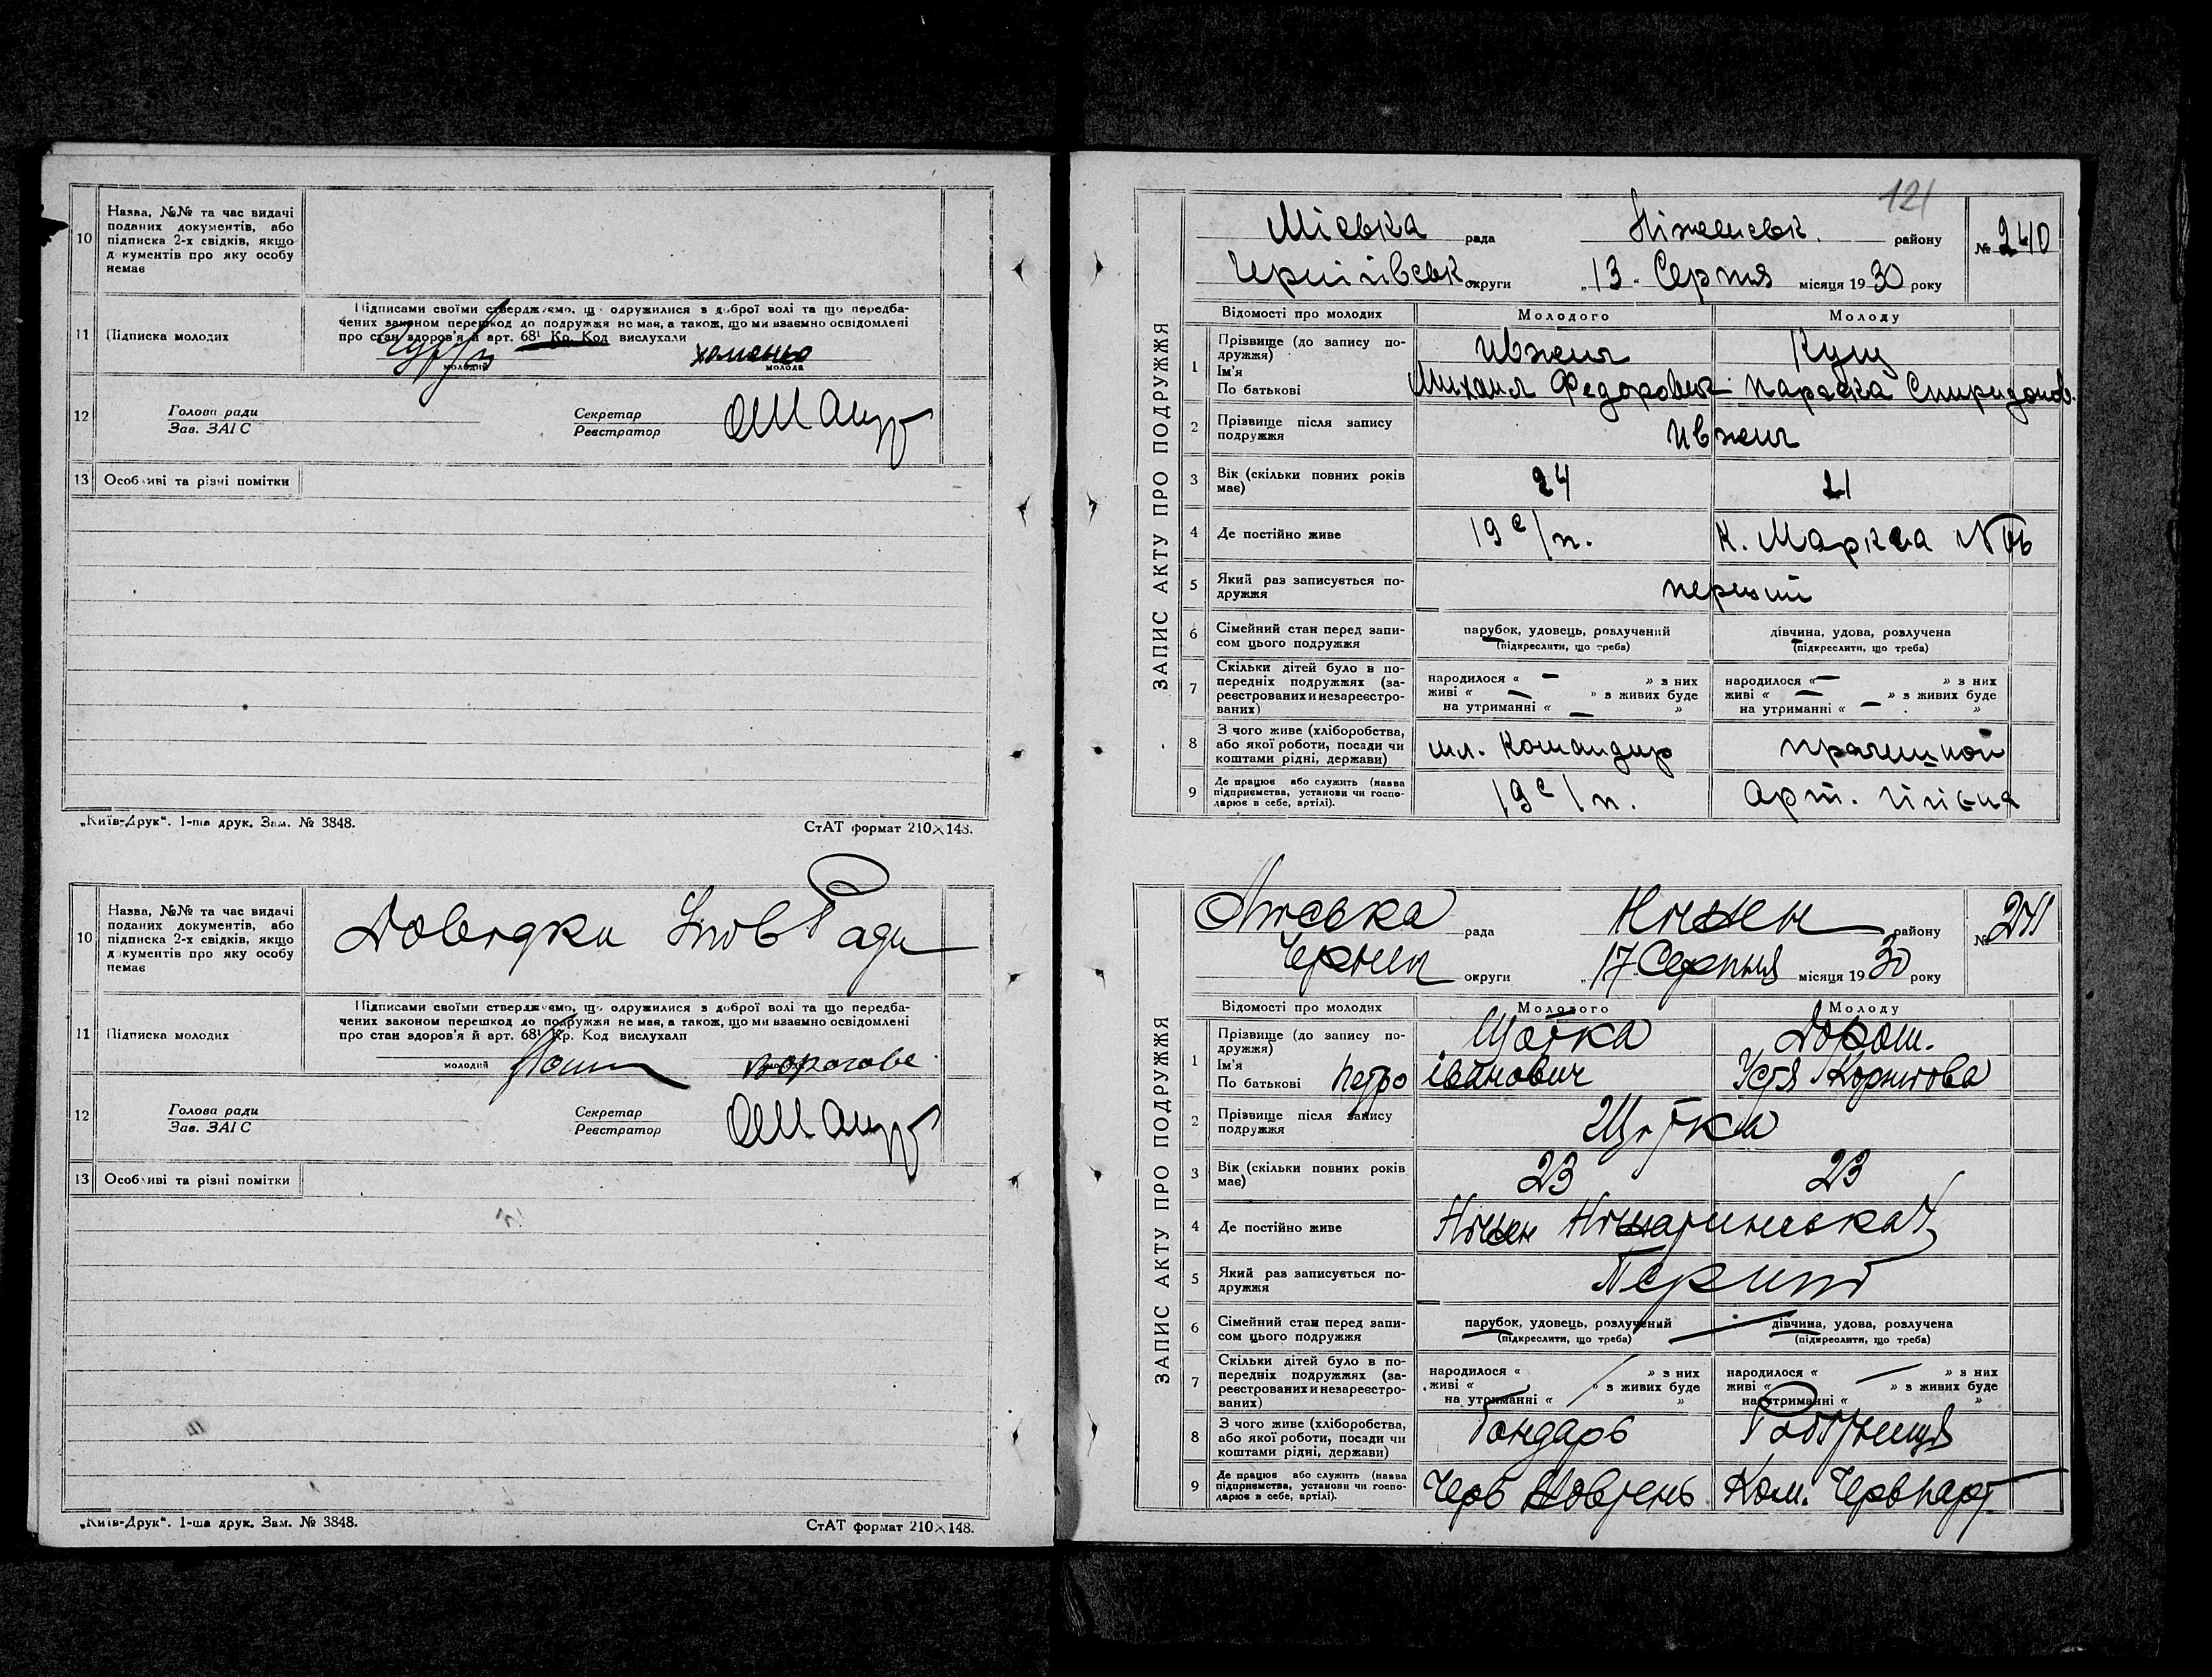 10
Назва, №№ та час видачі
поданих документів, або
підписка 2-х свідків, якщо
документів про яку особу
немає
11
Підписка молодих
Підписами своїми стверджуємо, що одружилися з доброї волі та що передба-
чених законом перешкод до подружжя не має, а також, що ми взаємно освідомлені
про стан здоров'я й арт. 68¹ Кр. Код вислухали
хоменко
молодий
молода
12
Голова ради
Зав. ЗАГС
Секретар
Реєстратор
13 Особливі та різні помітки
„Київ-Друк“. 1-ша друк. Зам. № 3848.
СтАТ формат 210×148.
10
Назва, №№ та час видачі
поданих документів, або
підписка 2-х свідків, якщо
документів про яку особу
немає
Довідки Ради
11
Підписка молодих
Підписами своїми стверджуємо, що одружилися з доброї волі та що передба-
чених законом перешкод до подружжя не має, а також, що ми взаємно освідомлені
про стан здоров'я й арт. 68¹ Кр. Код вислухали
молодий
12
Голова ради
Зав. ЗАГС
Секретар
Реєстратор
13 Особливі та різні помітки
„Київ-Друк“. 1-ша друк. Зам. № 3848.
СтАТ формат 210×148.
121
ЗАПИС АКТУ ПРО ПОДРУЖЖЯ
Міська рада Ніженськ. району № 240
Чернігівськ округи „13“ Серпня місяця 1930 року
Відомості про молодих Молодого Молоду
1 Прізвище (до запису по-
дружжя)
Ім'я
По батькові
Ивжич Кущ
Михаил Федорович Параска Спиридонов.
2 Прізвище після запису
подружжя
Ивжич
3 Вік (скільки повних років
має)
24 21
4 Де постійно живе 19 с/п. К. Маркса
5 Який раз записується по-
дружжя
перший
6 Сімейний стан перед запи-
сом цього подружжя
парубок, удовець, розлучений
(підкреслити, що треба)
дівчина, удова, розлучена
(підкреслити, що треба)
7 Скільки дітей було в по-
передніх подружжях (за-
реєстрованих и незареєстро-
ваних)
народилося « — » з них
живі « — » з живих буде
на утриманні « — »
народилося « — » з них
живі « — » з живих буде
на утриманні « — »
8 З чого живе (хліборобства,
або якої роботи, посади чи
коштами рідні, держави)
мл. командир прачешной
9 Де працює або служить (назва
підприємства, установи чи госпо-
дарює в себе, артілі).
19 с/п. Арт.
ЗАПИС АКТУ ПРО ПОДРУЖЖЯ
Міська рада Ніжен району № 241
округи „17 Серпня місяця 1930 року
Відомості про молодих Молодого Молоду
1 Прізвище (до запису по-
дружжя)
Ім'я
По батькові
Щотка Дорош.
Петро іванович Устя
2 Прізвище після запису
подружжя
Щотка
3 Вік (скільки повних років
має)
23 23
4 Де постійно живе Ніжен
5 Який раз записується по-
дружжя
Перший
6 Сімейний стан перед запи-
сом цього подружжя
парубок, удовець, розлучений
(підкреслити, що треба)
дівчина, удова, розлучена
(підкреслити, що треба)
7 Скільки дітей було в по-
передніх подружжях (за-
реєстрованих и незареєстро-
ваних)
народилося « » з них
живі « » з живих буде
на утриманні « »
народилося « » з них
живі « » з живих буде
на утриманні « »
8 З чого живе (хліборобства,
або якої роботи, посади чи
коштами рідні, держави)
Бондарь Робітниця
9 Де працює або служить (назва
підприємства, установи чи госпо-
дарює в себе, артілі).
Черв Жовтень Ком.